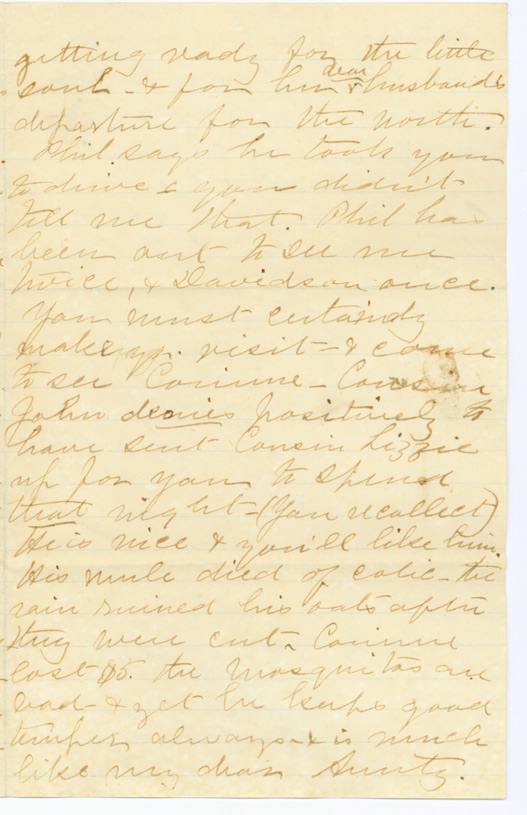 getting ready for the little
soul - & for her dear husband's
departure for the north.
Phil says he took you
to drive & you didn't
tell me that. Phil has
been out to see me
twice, & Davidson once.
You must certainly
make yr. visit - & come
to see Corinne - Cousin
John denies positively to
have sent Cousin Lizzie
up for you to spend
that night - (You recollect)
He is nice & you'll like him.
His mule died of colic - the
rain ruined his oats after
they were cut. Corinne
lost the mosquitos are
bad - & yet he keeps good
temper always & is much
like my dear Aunty.